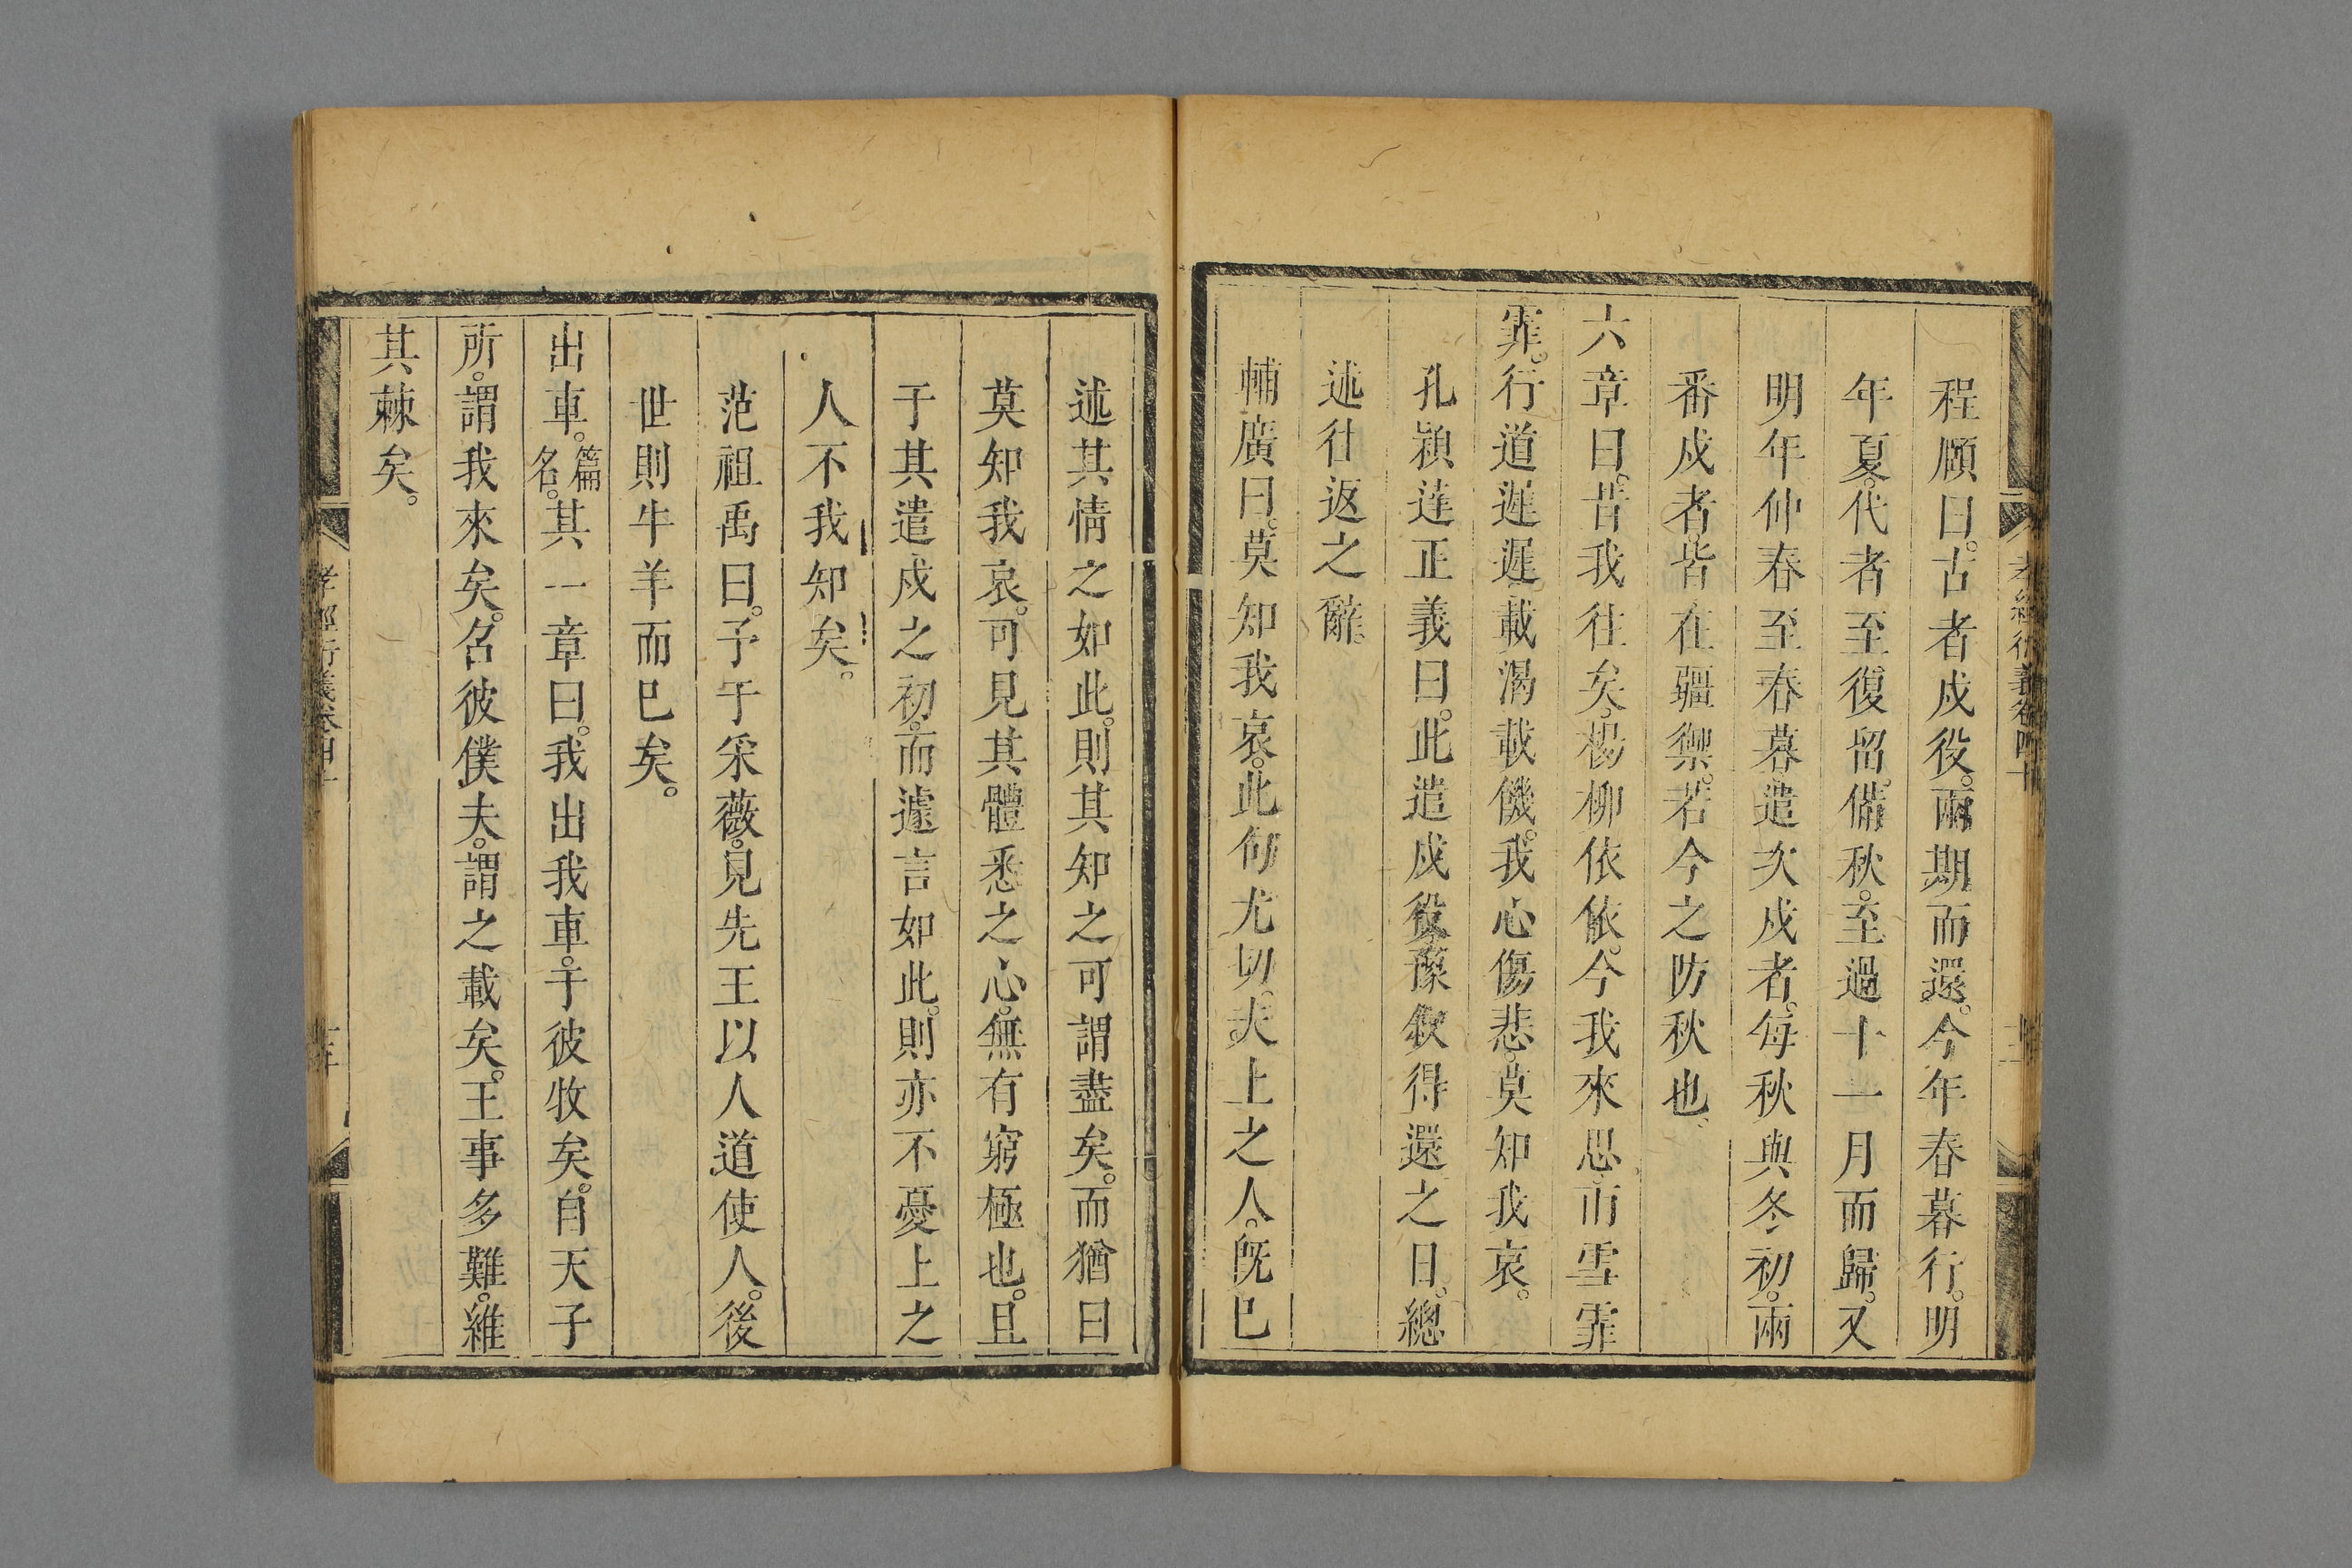 程頤曰。古者戍役。兩期而還。今年春暮行。明
年夏。代者至復留。備秋。至過十一月而歸。又
明年仲春至春暮遣次戍者。每秋與冬初。兩
番戍者。皆在疆禦。若今之防秋也、
六章曰。昔我往矣。楊柳依依。今我來思。雨雪霏
霏。行道遲遲。載渴載饑。我心傷悲。莫知我哀。
孔穎達正義曰。此遣戍役。豫敘得還之日。總
述往返之辭。
輔廣曰。莫知我哀。此句尤切。夫上之人。旣已
述其情之如此。則其知之可謂盡矣。而猶曰
莫知我哀。可見其體悉之心。無有窮極也。且
于其遣戍之初。而遽言如此。則亦不憂上之
人不我知矣。
范祖禹曰。予于采薇。見先王以人道使人。後
世則牛羊而已矣。
出車。篇名。其一章曰。我出我車。于彼牧矣。自天子
所。謂我來矣。召彼僕夫。謂之載矣。王事多難。維
其棘矣。
孝經衍義卷四十